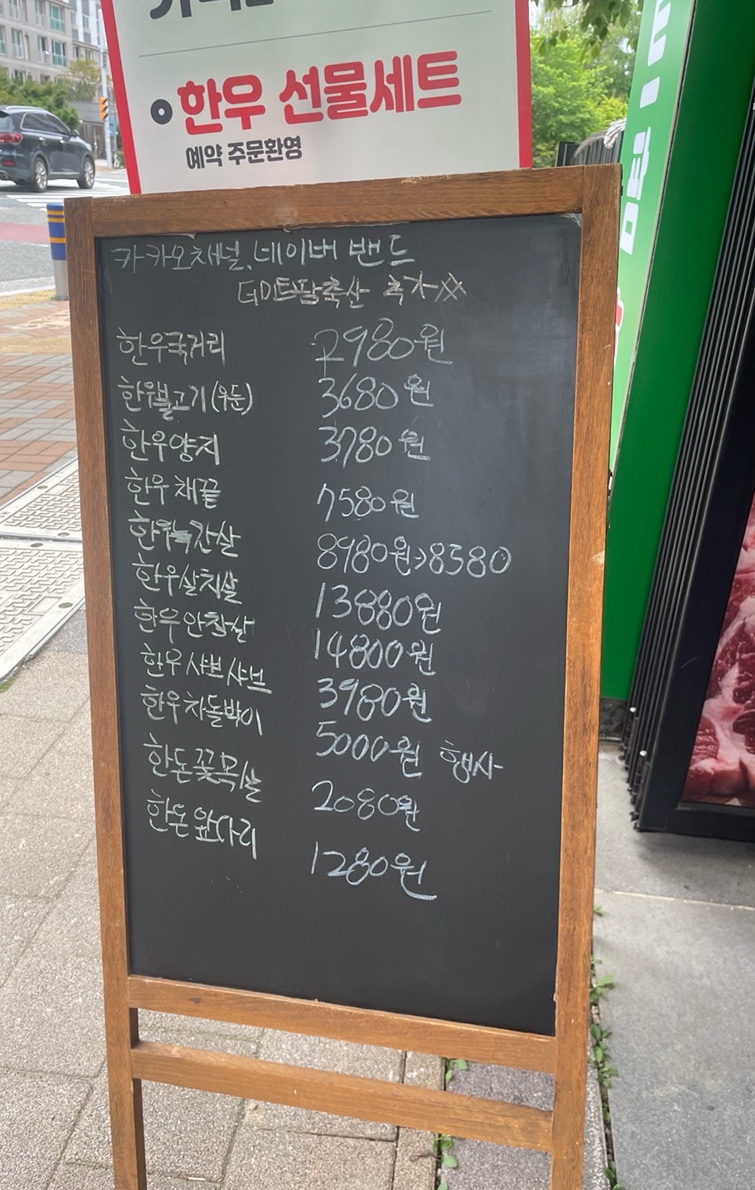 한우 선물세트
예약 주문환영
카카오채널, 네이버 밴드
축산
한우국거리 2980원
한우불고기(우둔) 3680원
한우양지 3780원
한우채끝 7580원
한우늑간살 8980원>8580
한우살치살 13880원
한우안창살 14800원
한우샤브샤브 3980원
한우차돌박이 5000원 행사
한돈꽃목살 2080원
한돈앞다리 1280원